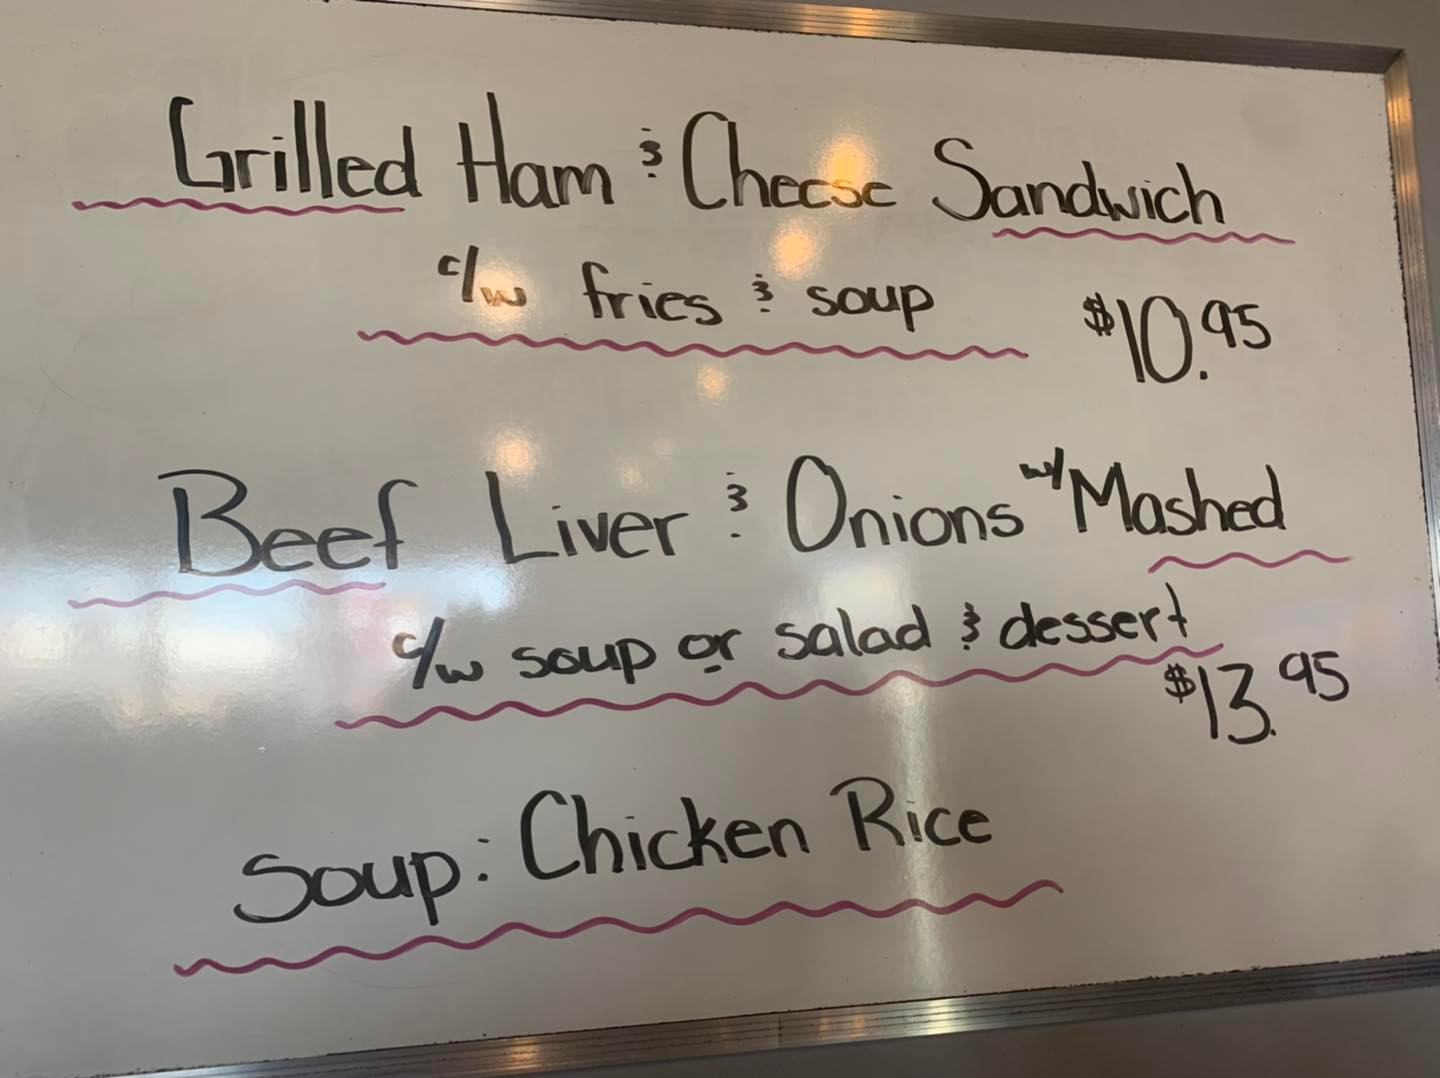 Grilled Ham & Cheese Sandwich
c/w fries & soup $10.95
Beef Liver & Onions w/ Mashed
c/w soup or salad & dessert
$13.95
Soup: Chicken Rice